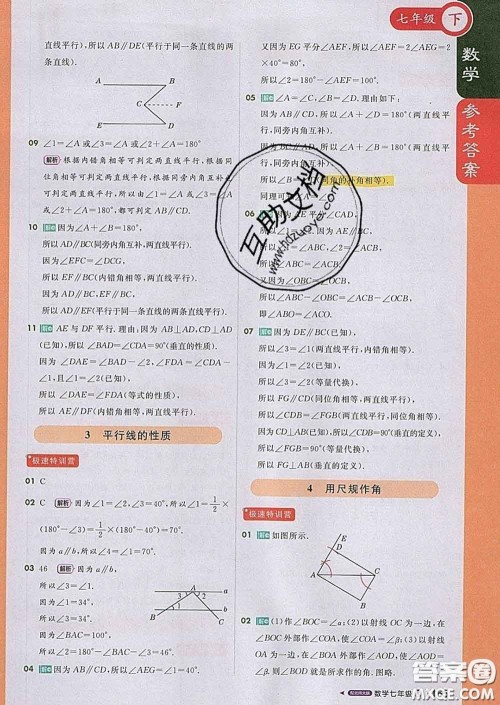 七年级 下
数学
参考答案
直线平行),所以 AB∥DE(平行于同一条直线的两
条直线平行).
A B
C F
D E
09 ∠1=∠A 或∠3=∠A 或∠2+∠A=180°
解析 根据内错角相等可判定两直线平行,根据同
位角相等可判定两直线平行,根据同旁内角互补可
判定两直线平行,所以可添加∠1=∠A 或∠3=∠A
或∠2+∠A=180°.
10 因为∠A+∠B=180°,
所以 AD∥BC(同旁内角互补,两直线平行).
因为∠EFC=∠DCG,
所以 EF∥BC(内错角相等,两直线平行).
因为 AD∥BC,EF∥BC,
所以 AD∥EF(平行于同一条直线的两直线平行).
11 AE 与 DF 平行.理由:因为 AB⊥AD,CD⊥AD
(已知),所以∠BAD=∠CDA=90°(垂直的意义).
因为∠DAE=∠BAD-∠2,∠FDA=∠CDA-
∠1,且∠1=∠2(已知),
所以∠DAE=∠FDA(等式的性质),
所以 AE∥DF(内错角相等,两直线平行).
3 平行线的性质
极速特训营
01 C
02 C 解析 因为∠1=∠2,∠3=40°,所以∠1=1/2
×(180°-∠3)=1/2×(180°-40°)=70°.
03 46 解析 因为 a∥b,
所以∠3=∠1.
因为∠1=34°,
所以∠3=34°.
因为 a∥b,
所以∠2=180°-∠BAC-∠3=46°.
A 3 a
1 2 b
04 因为∠1=∠A(已知),
又因为 EG 平分∠AEF,所以∠AEF=2∠AEG=2
×40°=80°,
所以∠2=180°-∠AEF=100°.
05 ∠A=∠C,∠B=∠D.理由如下:
因为 AB∥CD,所以∠A+∠D=180°(两直线平
行,同旁内角互补).
因为 BC∥AD,所以∠A+∠B=180°(两直线平
行,同旁内角互补),
所以∠B=∠D(同角的补角相等).
同理可
06 ∠6=∠CAD,
所以 AD∥
所以∠OBC=
因为∠OAC=∠
所以∠ABC=∠ACB,
又因为∠OBC=∠OCB,
所以∠ABC-∠OBC=∠ACB-∠OCB,
即∠ABO=∠ACO.
07 因为 DE∥BC(已知),
所以∠1=∠3(两直线平行,内错角相等).
因为∠1=∠2(已知),
所以∠2=∠3(等量代换),
所以 FG∥CD(同位角相等,两直线平行),
所以∠CDB=∠FGB(两直线平行,同位角相等).
因为 CD⊥AB(已知),所以∠CDB=90°(垂直的意义),
所以∠FGB=90°(等量代换),
所以 FG⊥AB(垂直的定义).
4 用尺规作角
极速特训营
01 如图所示.
E
D
A C
B
02 (1)作∠BOC=∠α;(2)以射线 OC 为一边,在
∠BOC 外部作∠COA,使∠COA=∠α;(3)以射线
OA 为一边,在∠BOA 外部作∠AOD,使∠AOD
=∠β,则∠BOD 就是所求作的角.图略.
配北师大版 数学七年级
互助文档
www.hdzuoye.com
答案圈
MXQE.COM